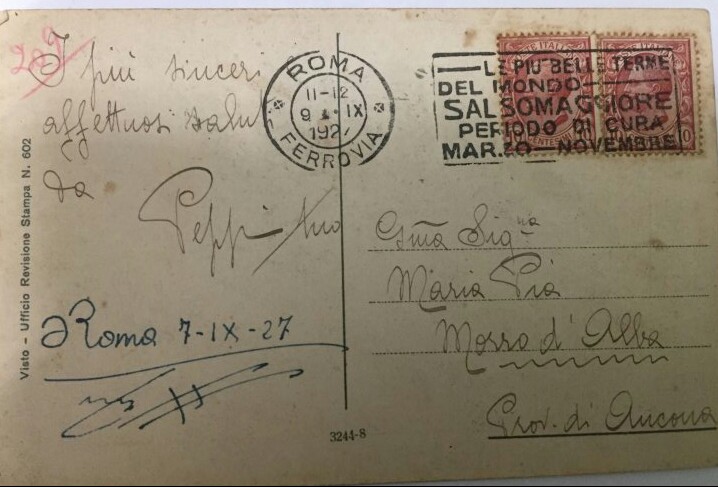 209
I più sinceri
affettuosi saluti
da
Peppino
a Roma 7-IX-27
Visto - Ufficio Revisione Stampa N. 602
ROMA
11-12
9 IX
1927
FERROVIA
LE PIÙ BELLE TERME
DEL MONDO
SALSOMAGGIORE
PERIODO DI CURA
MARZO - NOVEMBRE
Gma Signa
Maria Pia
Morro d'Alba
Prov. di Ancona
3244-8